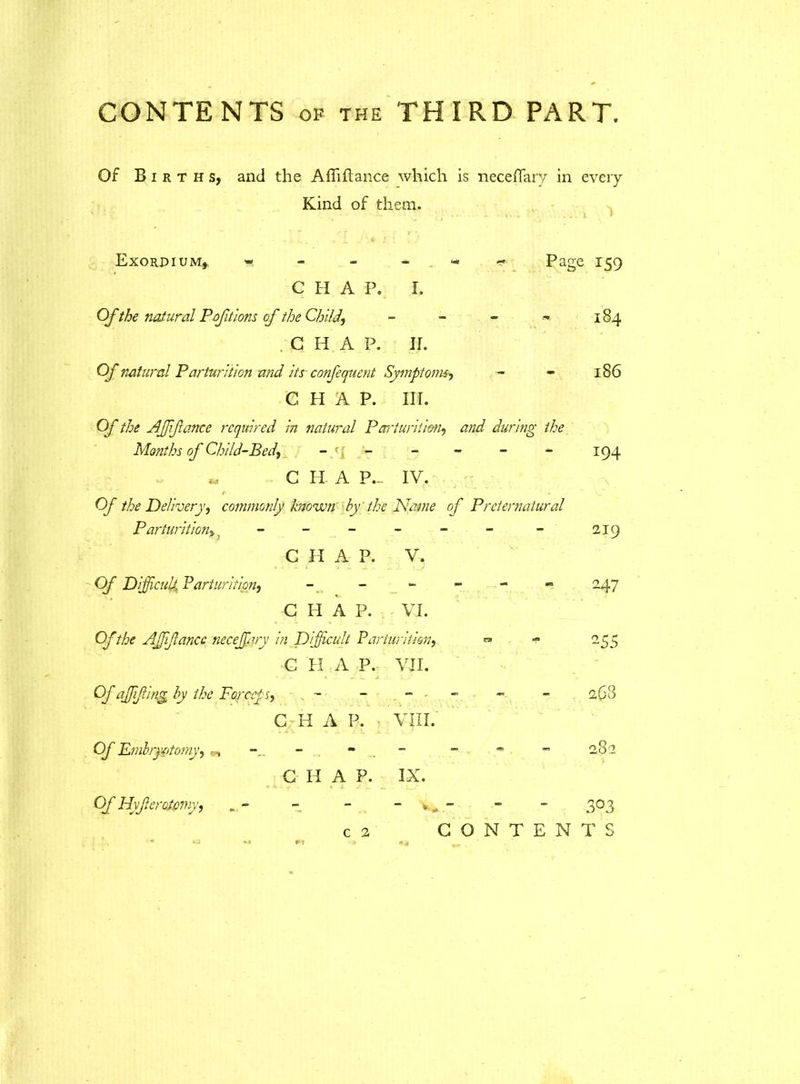 CONTENTS OF THE THIRD PART.
Of BIRTHS, and the Aſſiſtance which is neceſſary in every
Kind of them.
EXORDIUM, - - - - - - Page 159
CHAP. I.
Of the natural Poſitions of the Child, - - - - 184
CHAP. II.
Of natural Parturition and its conſequent Symptoms, - - 186
CHAP. III.
Of the Aſſiſtance required in natural Parturition, and during the
Months of Child-Bed, - - - - - - 194
CHAP. IV.
Of the Delivery, commonly known by the Name of Preternatural
Parturition, - - - - - - - 219
CHAP. V.
Of Difficult Parturition, - - - - - - 247
CHAP. VI.
Of the Aſſiſtance neceſſary in Difficult Parturition, - - 255
CHAP. VII.
Of aſſiſting by the Forceps, - - - - - - 268
CHAP. VIII.
Of Embryotomy, - - - - - - - - 282
CHAP. IX.
Of Hyſterotomy, - - - - - - - 303
c 2 CONTENTS